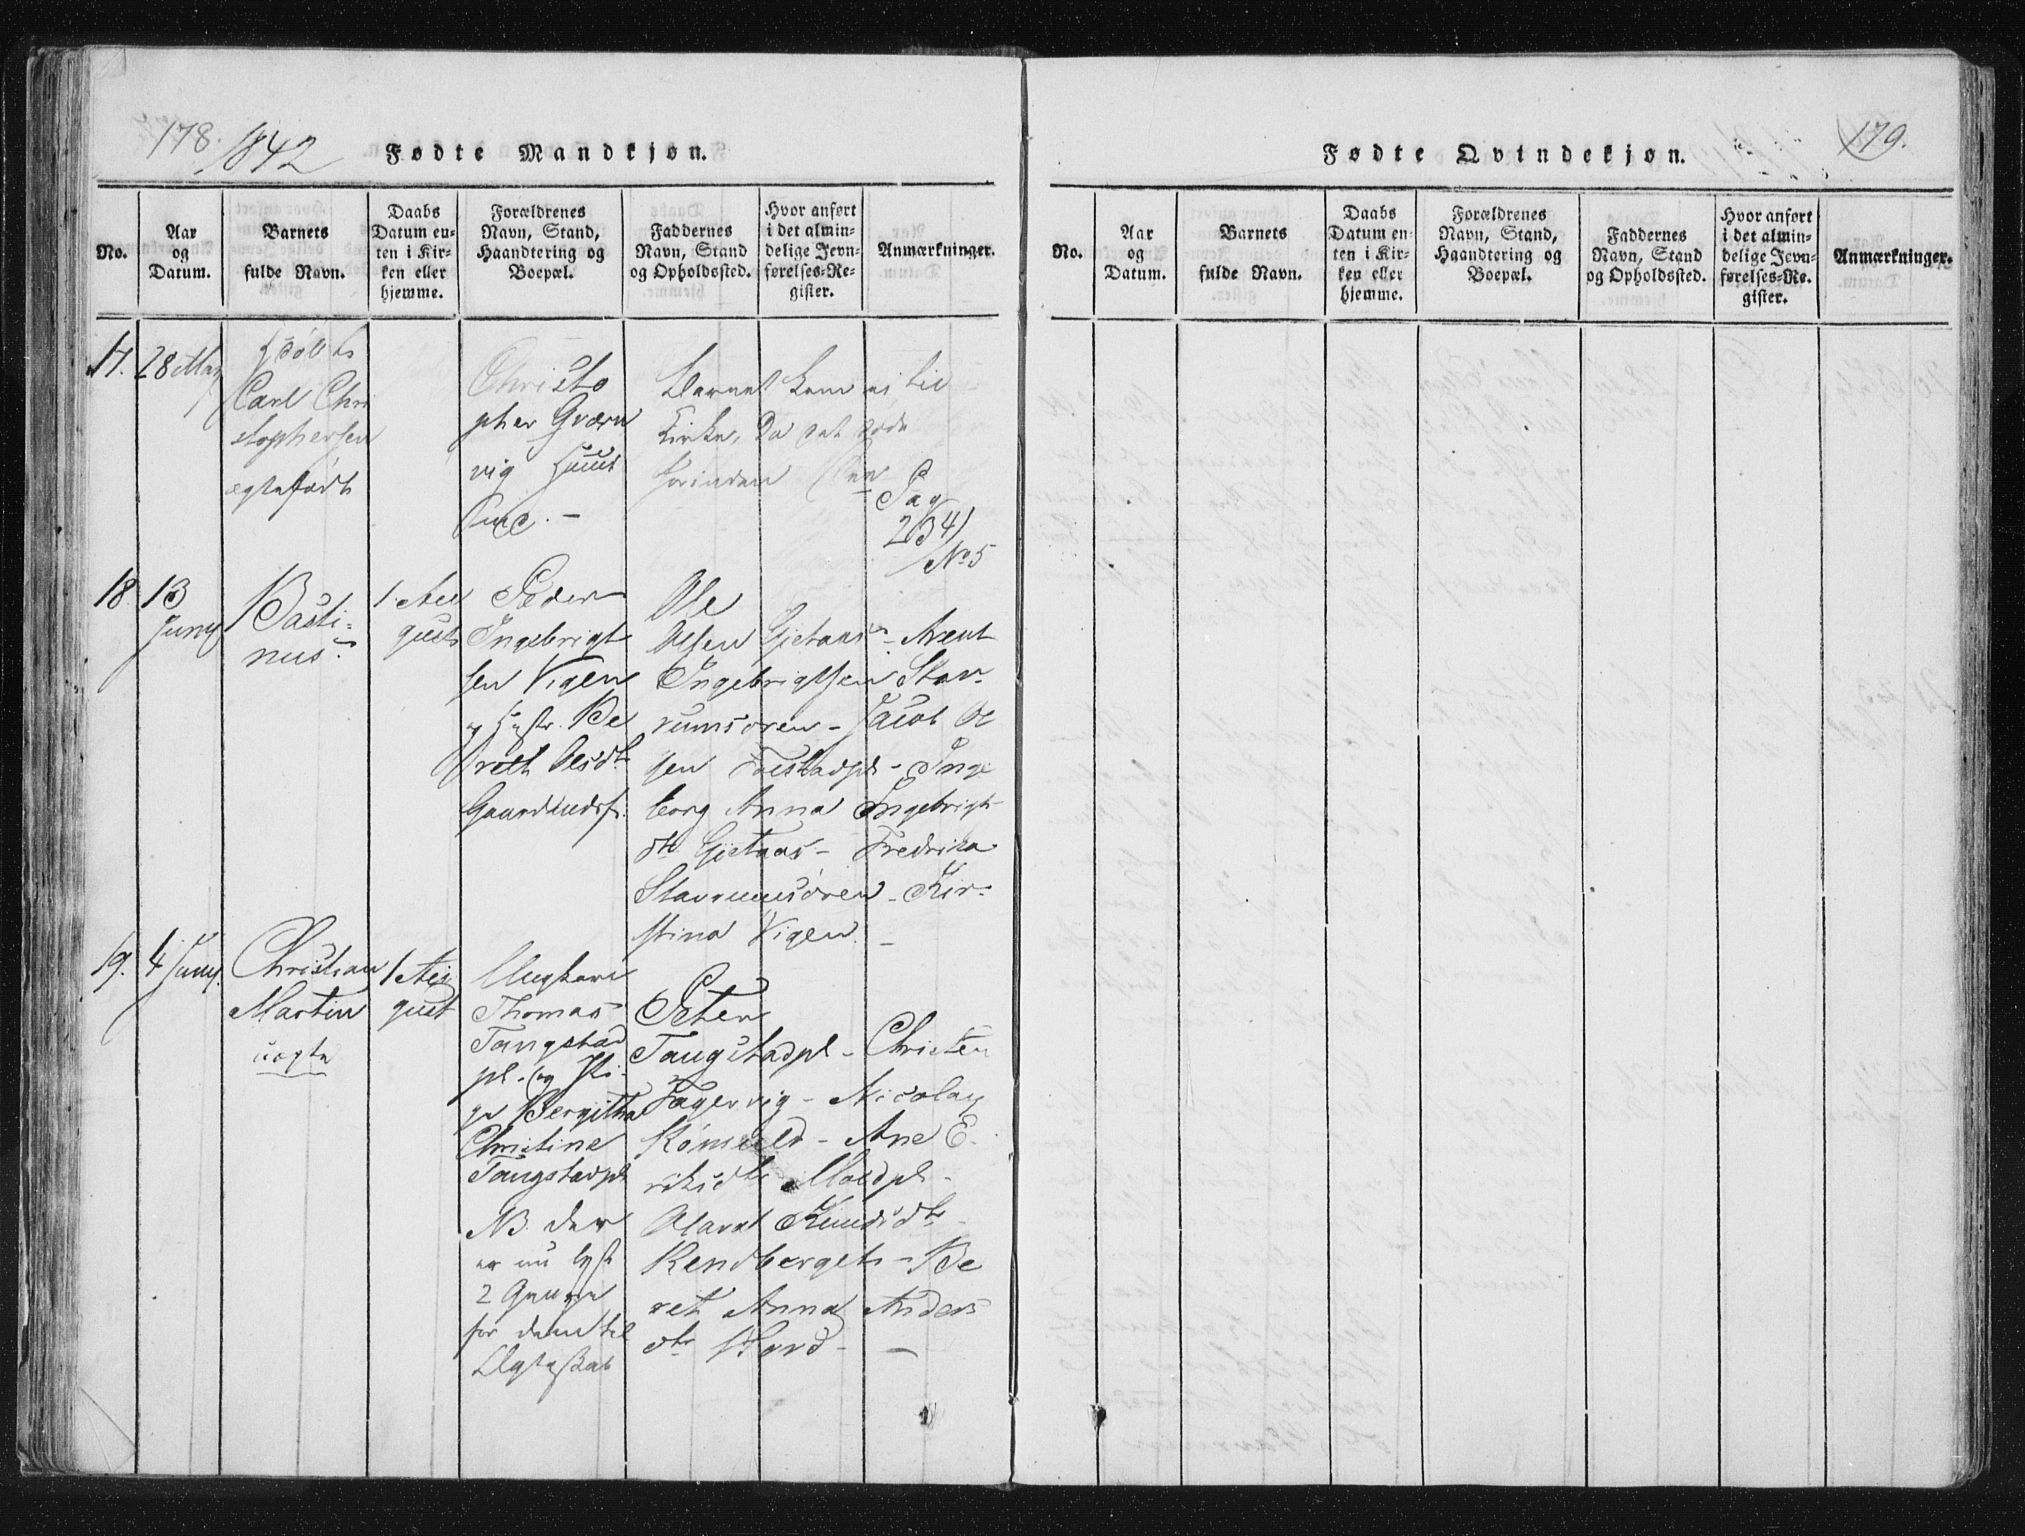 178.
1842
Fødte Mandkjøn.
No.
Aar
og
Datum.
Barnets
fulde Navn.
Daabs
Datum en-
ten i Kir-
ken eller
hjemme.
Forældrenes
Navn, Stand,
Haandtering og
Boepæl.
Faddernes
Navn, Stand
og Opholdssted.
Hvor anført
i det almin-
delige Jevn-
førelses-Re-
gister.
Anmærkninger.
17.
28 Maj
Carl Chri
stophersen
ægtefødt
Christo
pher Grørn
vig
Barnet kom ei til
Kirke, da det døde
forinden
Pag
234
No 5
18.
13
Juny
Basti-
nus.
1. Au
gust
Peder
Ingebrigt
sen Vigen
og Hustr. Be
reth Olsdt
Gaardmdsf.
Ole
Olsen Gjetaas - Arent
Ingebrigtsen Stav-
rumsøren - Jacob Ol
sen - Inge
borg Anna Ingebrigts
dtr Gjetaas - Fredrika
Stavrumsøren - Kir-
stina Vigen. -
19.
4 Juny.
Christian
Martin
uægte
1 Au
gust
Ungkarl
Thomas
Tangstad
pl. og Pi-
ge Bergitha
Christine
Tangstadpl
NB. der
er nu lyst
2 Gange
for dem til
Ægteskab
Peter
Tangstadpl - Christen
Fagervig - Nicolay
- Ane E-
riksdtr
Olava Knudsdtr
- Be
ret Anna Anders
dtr -
179.
Fødte Qvindekjøn.
No.
Aar
og
Datum.
Barnets
fulde Navn.
Daabs
Datum en-
ten i Kir-
ken eller
hjemme.
Forældrenes
Navn, Stand,
Haandtering og
Boepæl.
Faddernes
Navn, Stand
og Opholdssted.
Hvor anført
i det almin-
delige Jevn-
førelses-Re-
gister.
Anmærkninger.